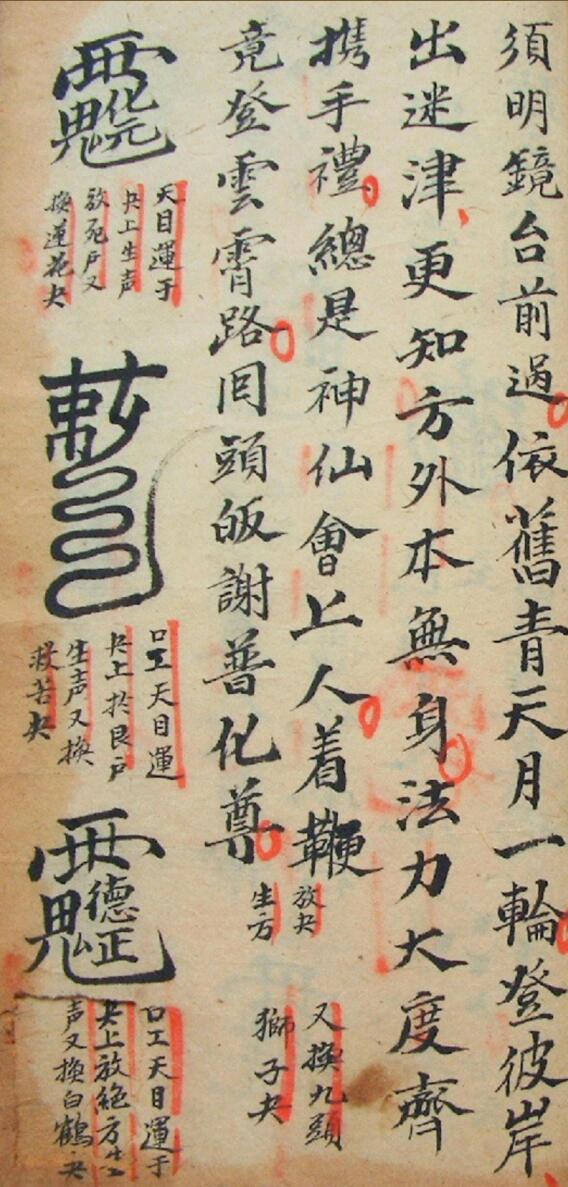 須明鏡台前過依舊青天月一輪登彼岸
出迷津更知方外本無身法力大度齊
携手禮總是神仙會上人着鞭
放夬
生方
又換九頭
獅子夬
竟登雲霄路回頭皈謝普化尊
化元
天目運于
夬上生声
放死户又
換蓮花夬
口工天目運
夬上於艮户
生声又换
救苦夬
德正
口工天目運于
夬上放絶方生
声又換白鶴夬